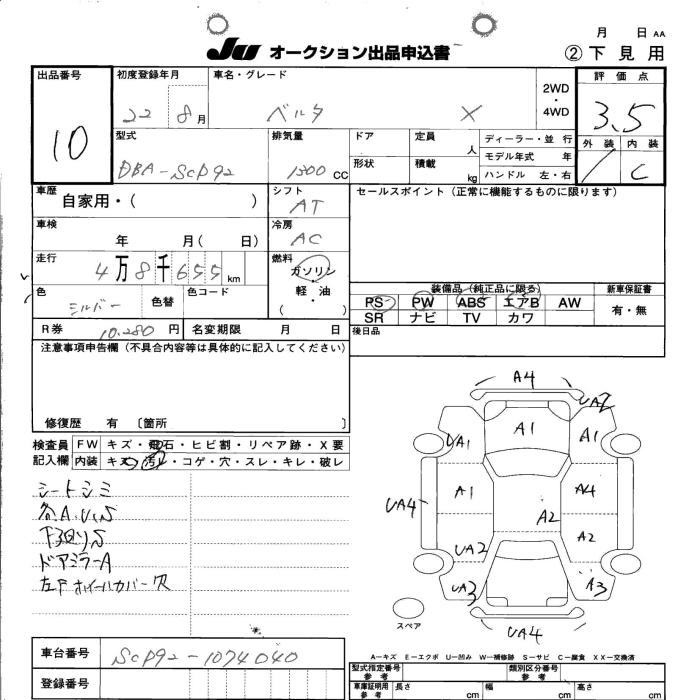 月 日 AA
JU オークション出品申込書 ②下見用
出品番号 初度登録年月 車名・グレード 2WD・4WD 評価点
10 22 8月 ベルタ X 3.5
型式 排気量 ドア 定員 人 ディーラー・並行 外装 内装
DBA-SCP92 1300 CC 形状 積載 kg モデル年式 年 C
ハンドル 左・右
車歴 自家用・( ) シフト AT セールスポイント(正常に機能するものに限ります)
車検 年 月( 日) 冷房 AC
走行 4万8千655km 燃料 ガソリン 軽・油 ( )
色 シルバー 色替 色コード
装備品(純正品に限る) 新車保証書
PS PW ABS エアB AW 有・無
SR ナビ TV カワ
R券 10.280円 名変期限 月 日 後日品
注意事項申告欄(不具合内容等は具体的に記入してください)
修復歴 有 〔箇所 〕
検査員記入欄 FW キズ・飛石・ヒビ割・リペア跡・X要
内装 キズ・汚レ・コゲ・穴・スレ・キレ・破レ
シートシミ
各A.U.S
下回りS
ドアミラーA
左F ホイルカバー欠
A4
UA2
UA1 A1 A1
UA4 A1 A4
A2
UA2 A2
UA3 A3
UA4
スペア
A-キズ E-エクボ U-凹み W-補修跡 S-サビ C-腐食 XX-交換済
車台番号 SCP92-1074040
登録番号
型式指定番号 参考 類別区分番号 参考
車庫証明用 参考 長さ cm 幅 cm 高さ cm